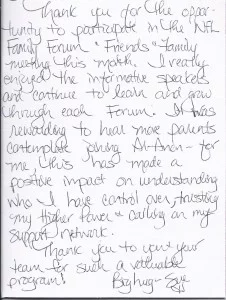 Thank you for the oppor-
tunity to participate in the NFL
Family Forum "Friends & Family
meeting this month. I really
enjoyed the informative speakers
and continue to learn and grow
through each Forum. It was
rewarding to hear more parents
contemplate joining Al-Anon - for
me this has made a
positive impact on understanding
who I have control over, trusting
my Higher Power & calling on my
support network.
Thank you to your
team for such a valuable
program! Big hug -